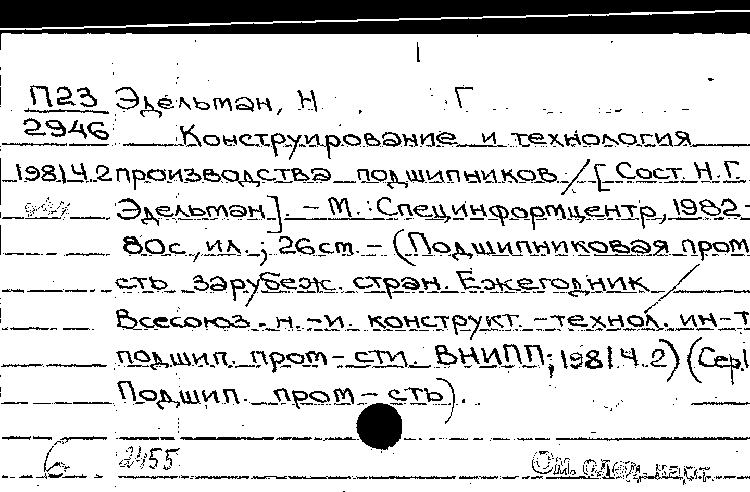 П23 Эдельман, Н. Г.
2946 Конструирование и технология
1981 ч.2 производства подшипников / [Сост. Н.Г.
Эдельман]. – М.: Специнформцентр, 1982-
80с., ил.; 26см. – (Подшипниковая пром
сть зарубеж. стран. Ежегодник /
Всесоюз. н.-и. конструкт.-технол. ин-т
подшип. пром-сти. ВНИПП; 1981 ч.2) (Сер.
Подшип. пром-сть).
6 2455 См. след. карт.